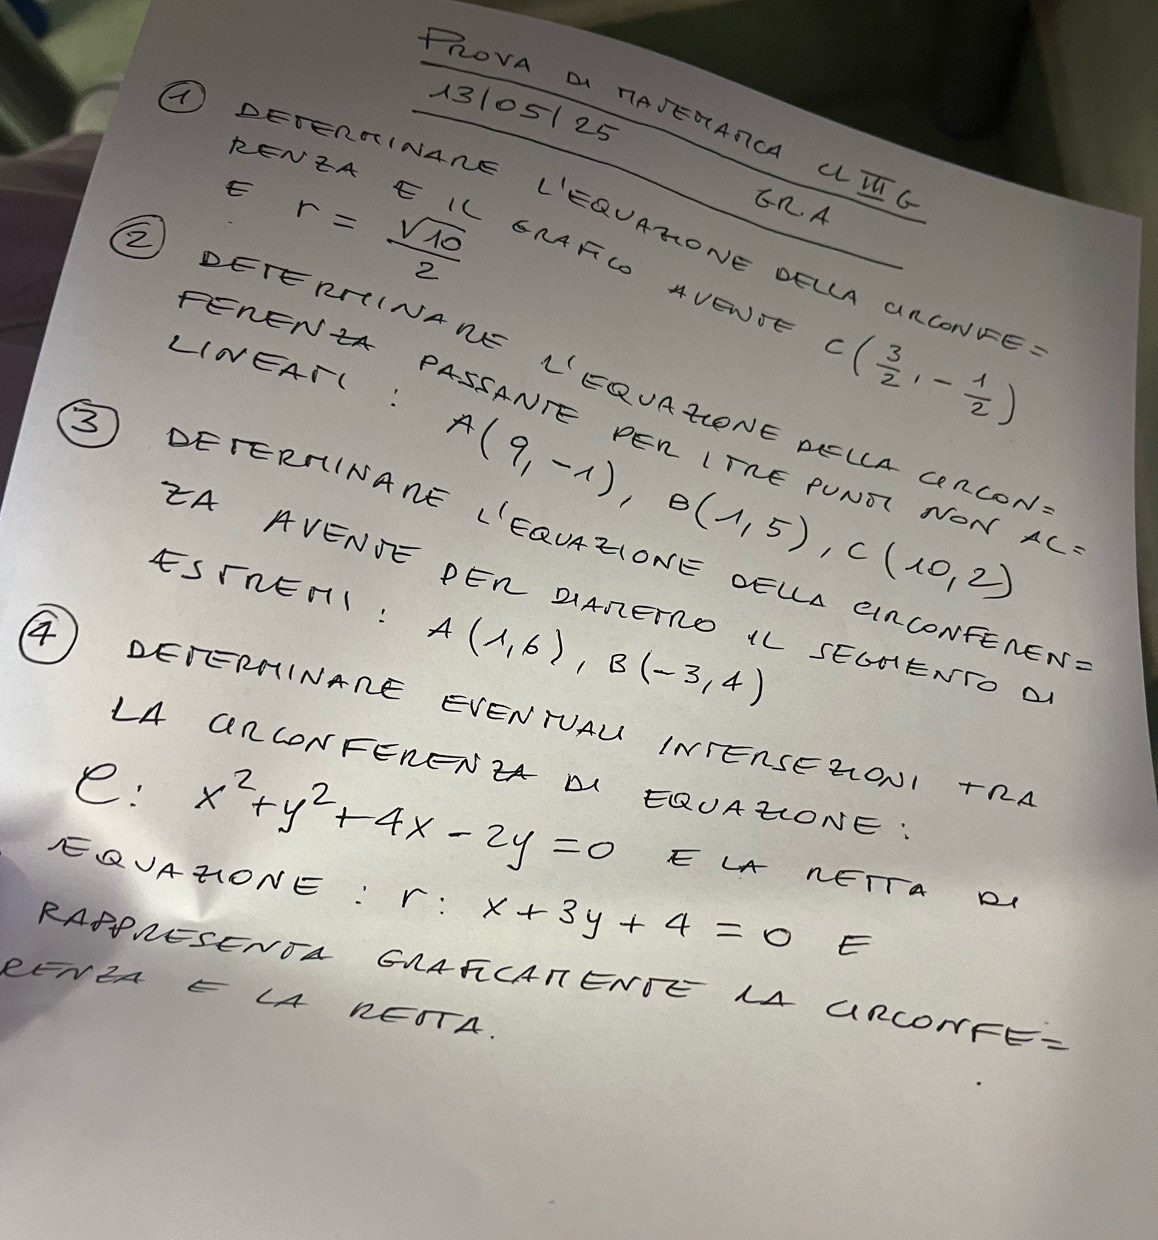 PROVA DI MATEMATICA CL III G
13/05/25 GR.A
① DETERMINARE L'EQUAZIONE DELLA CIRCONFE=
RENZA E IL GRAFICO AVENTE C(3/2, -1/2)
E r = √10/2
② DETERMINARE L'EQUAZIONE DELLA CIRCON=
FERENZA PASSANTE PER I TRE PUNTI NON AL=
LINEATI : A(9,-1), B(1,5), C(10,2)
③ DETERMINARE L'EQUAZIONE DELLA CIRCONFEREN=
ZA AVENTE PER DIAMETRO IL SEGMENTO DI
ESTREMI : A(1,6), B(-3,4)
④ DETERMINARE EVENTUALI INTERSEZIONI TRA
LA CIRCONFERENZA DI EQUAZIONE :
C: x²+y²+4x-2y=0 E LA RETTA DI
EQUAZIONE : r: x+3y+4=0 E
RAPPRESENTA GRAFICAMENTE LA CIRCONFE=
RENZA E LA RETTA.